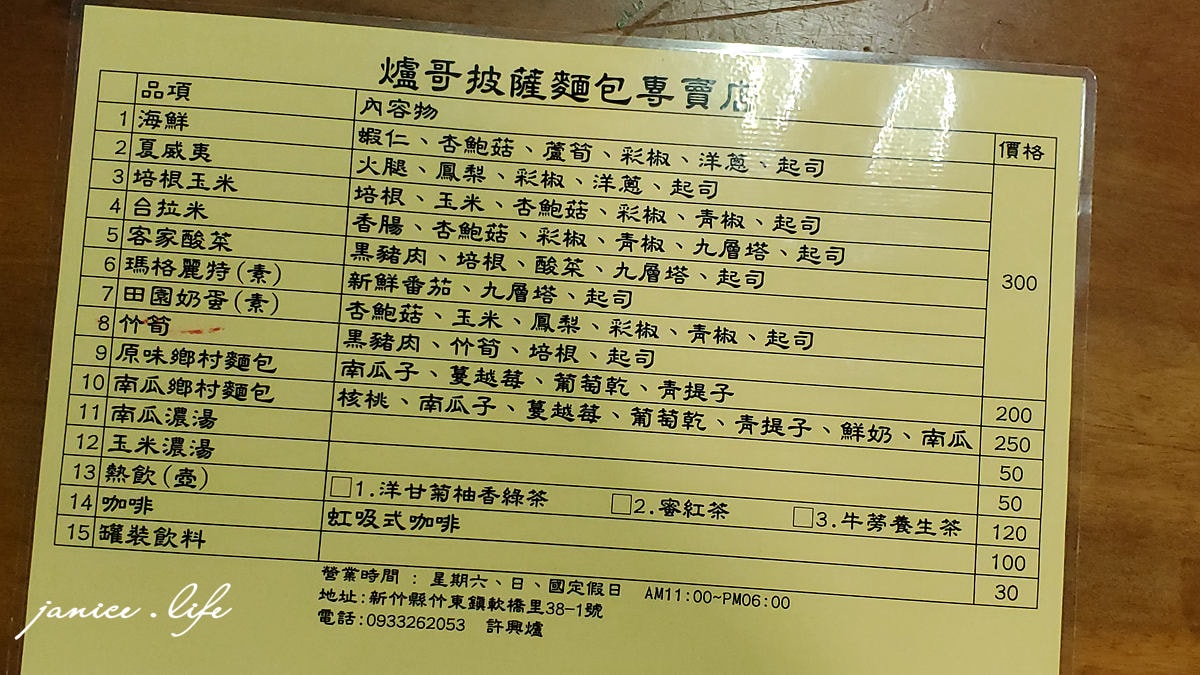 爐哥披薩麵包專賣店
品項 內容物 價格
1 海鮮 蝦仁、杏鮑菇、蘆筍、彩椒、洋蔥、起司
2 夏威夷 火腿、鳳梨、彩椒、洋蔥、起司
3 培根玉米 培根、玉米、杏鮑菇、彩椒、青椒、起司
4 台拉米 香腸、杏鮑菇、彩椒、青椒、九層塔、起司
5 客家酸菜 黑豬肉、培根、酸菜、九層塔、起司
6 瑪格麗特(素) 新鮮番茄、九層塔、起司
7 田園奶蛋(素) 杏鮑菇、玉米、鳳梨、彩椒、青椒、起司
8 竹筍 黑豬肉、竹筍、培根、起司
300
9 原味鄉村麵包 南瓜子、蔓越莓、葡萄乾、青提子 200
10 南瓜鄉村麵包 核桃、南瓜子、蔓越莓、葡萄乾、青提子、鮮奶、南瓜 250
11 南瓜濃湯 50
12 玉米濃湯 50
13 熱飲(壺) □1.洋甘菊柚香綠茶 □2.蜜紅茶 □3.牛蒡養生茶 120
14 咖啡 虹吸式咖啡 100
15 罐裝飲料 30
營業時間 : 星期六、日、國定假日 AM11:00~PM06:00
地址:新竹縣竹東鎮軟橋里38-1號
電話:0933262053 許興爐
janice.life